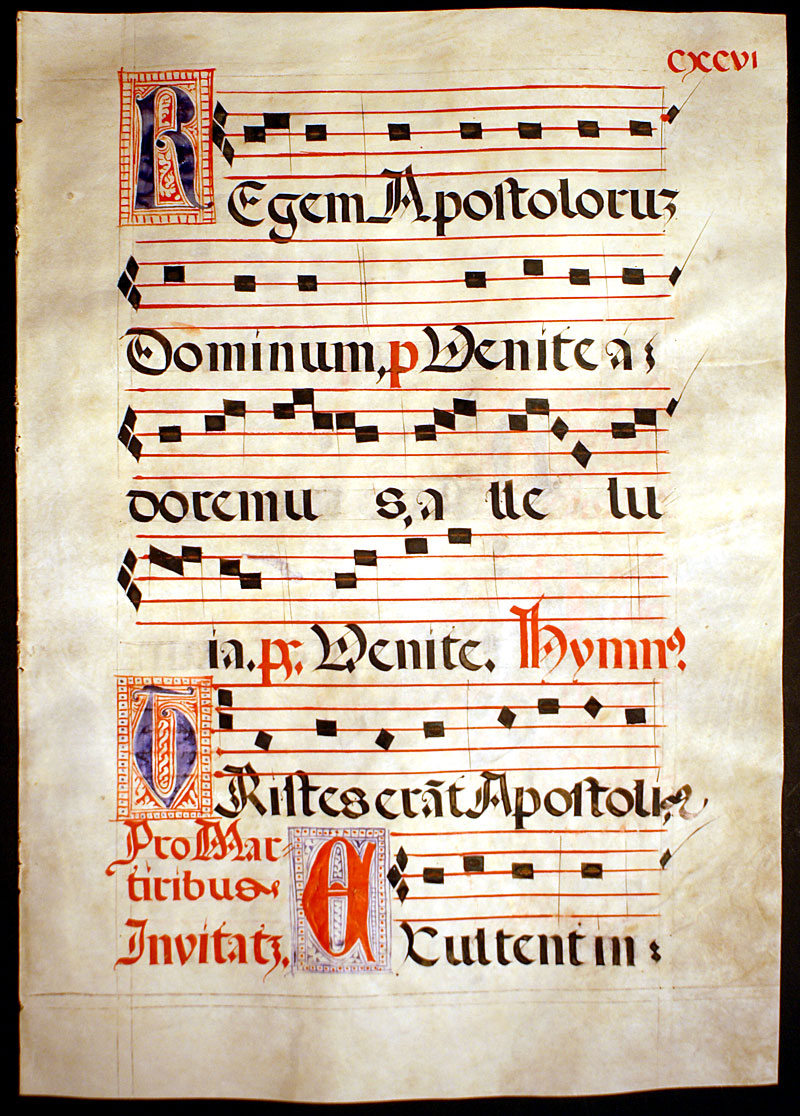 CXCVI
REgem Apostoloruz
Dominum, p Venite a:
doremu s, a lle lu
ia. ps. Venite. Hymn9
TRistes erãt Apostoli,
Pro Mar-
tiribus
Invitatz.
EXultent in :